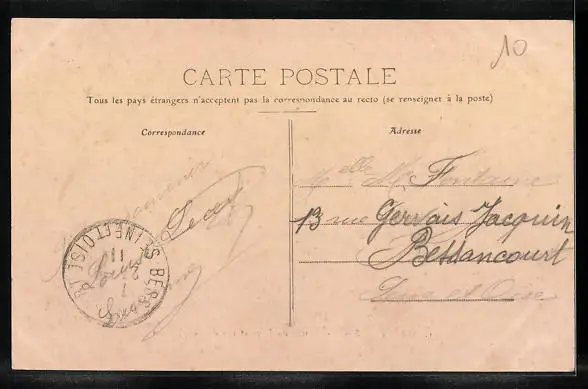 10
CARTE POSTALE
Tous les pays étrangers n'acceptent pas la correspondance au recto (se renseigner à la poste)
Correspondance
Adresse
Melle M. Fontaine
13 rue Gervais Jacquin
Bessancourt
Seine et Oise
Souvenir
BESS
SEINE ET OISE
11